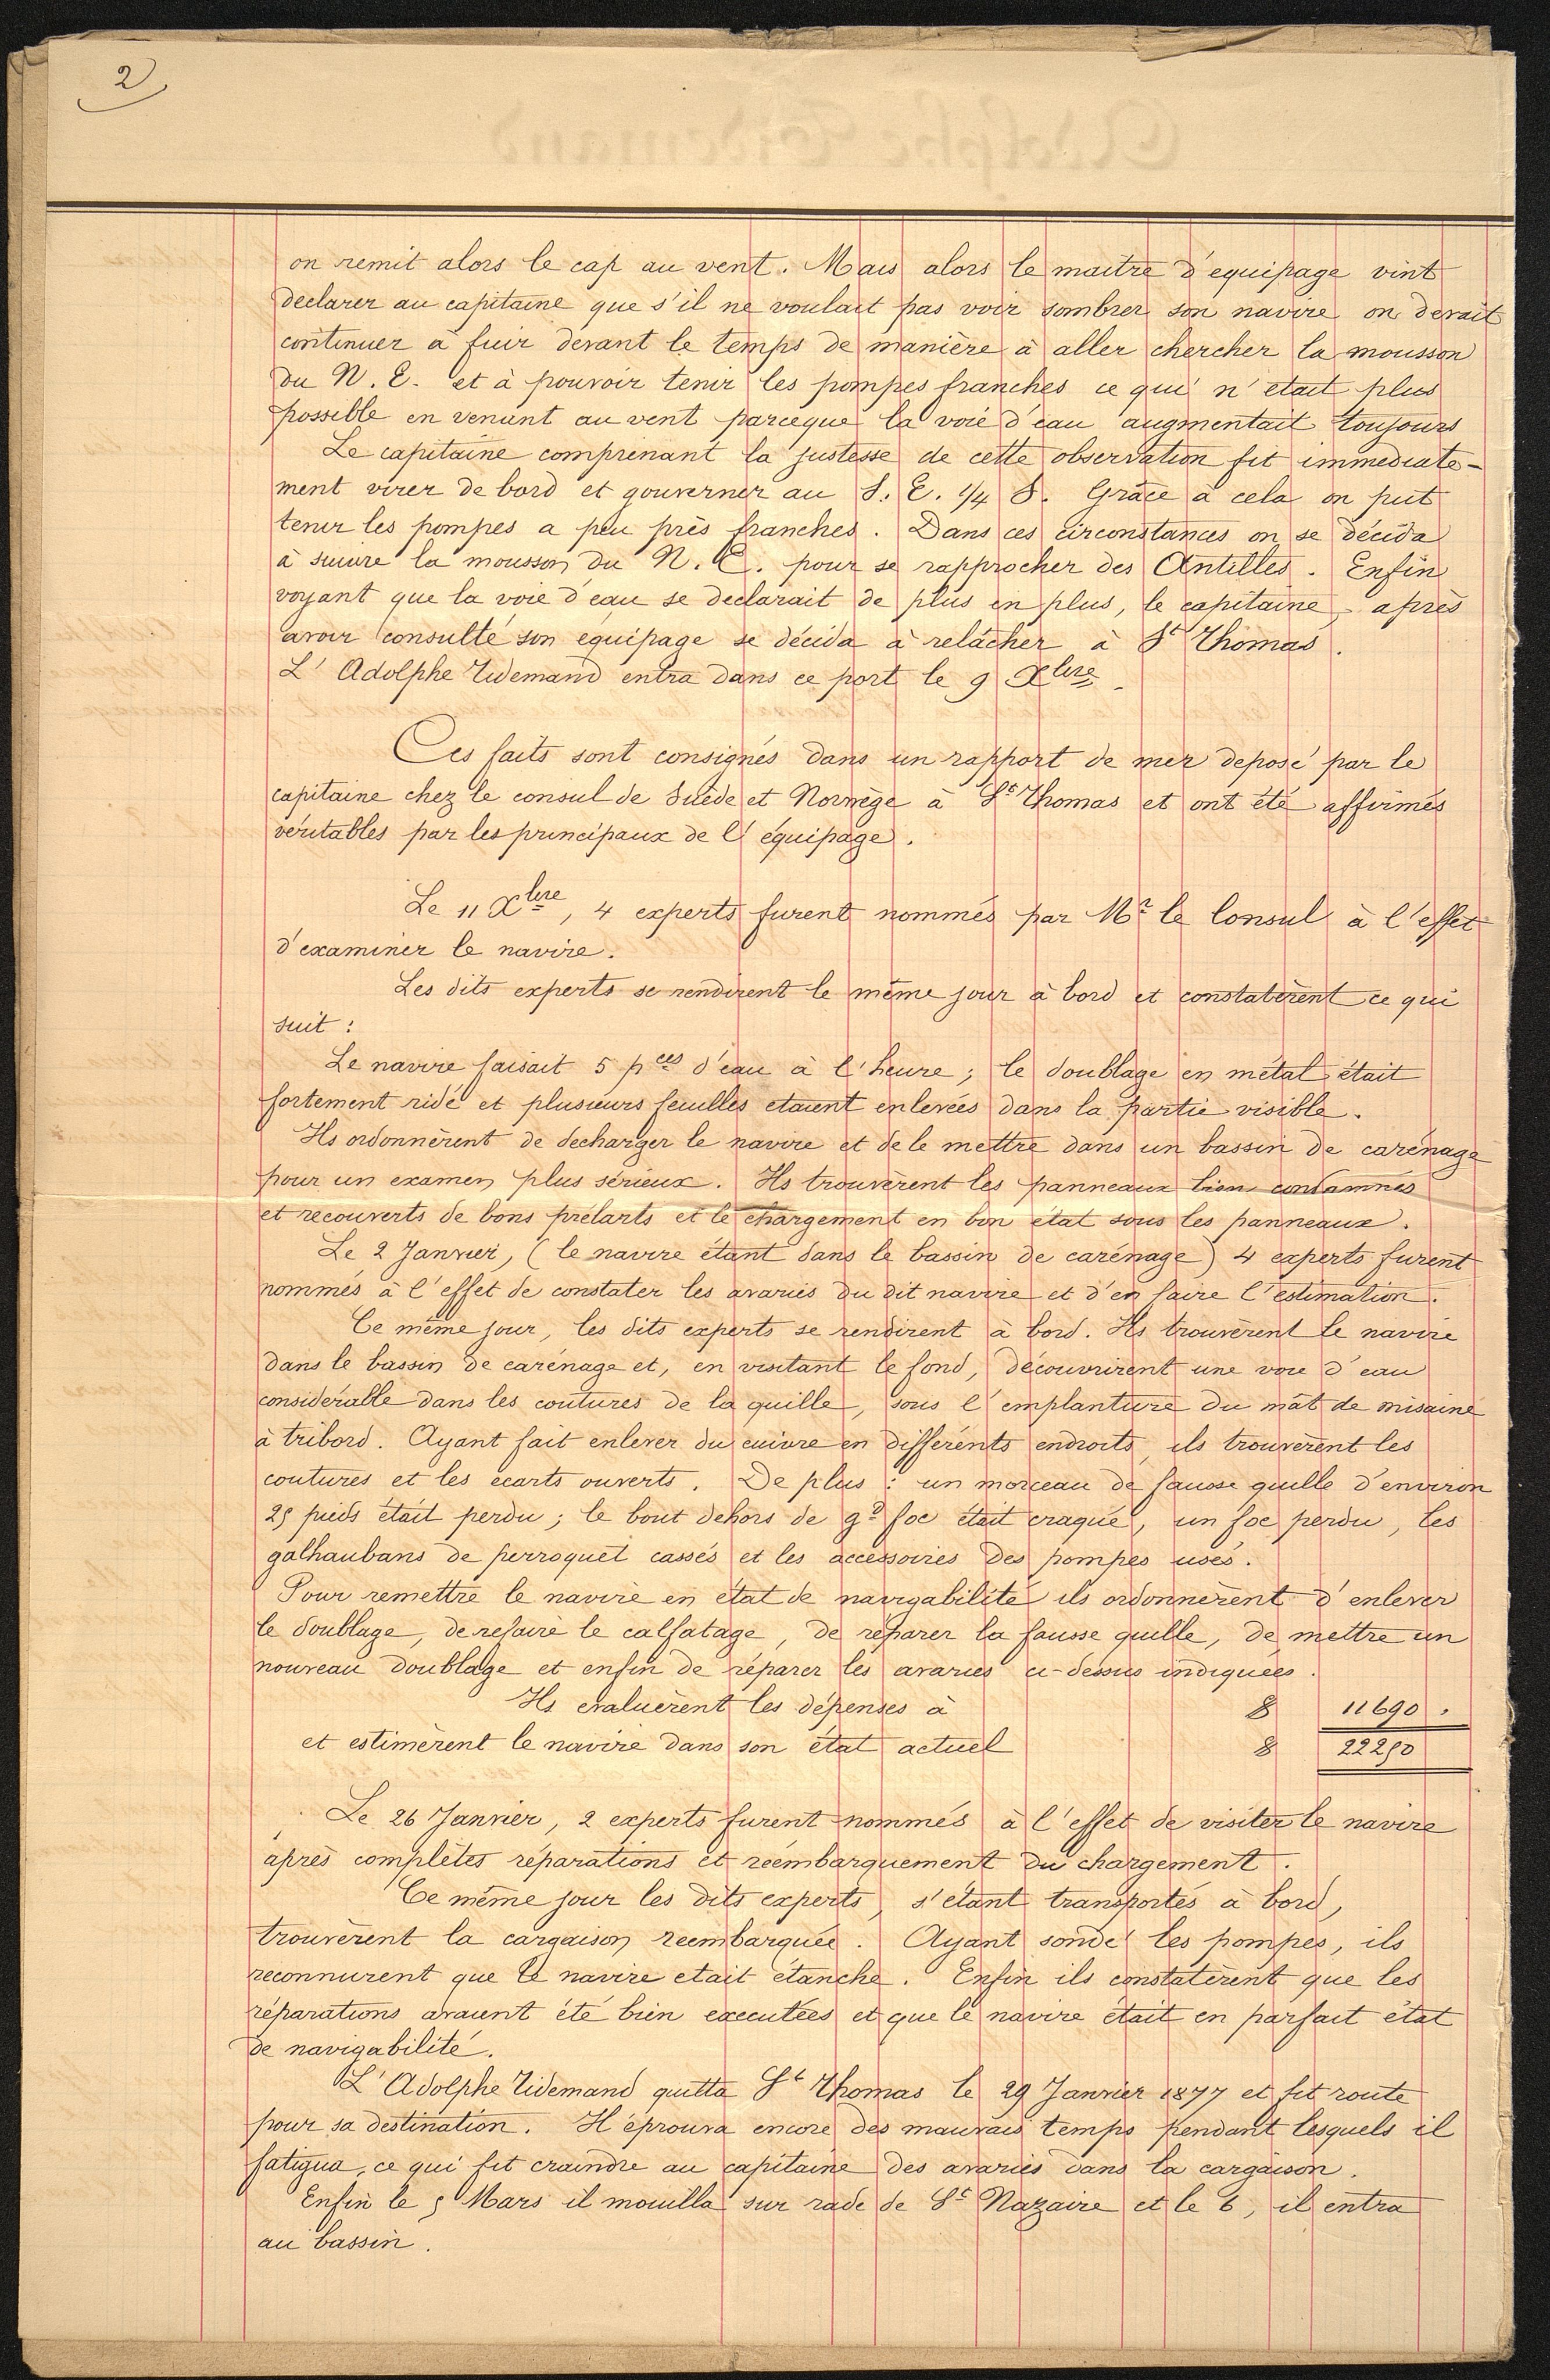 2
on remit alors le cap au vent. Mais alors le maitre d'equipage vint
declarer au capitaine que s'il ne voulait pas voir sombrer son navire on devait
continuer à fuir devant le temps de manière à aller chercher la mousson
du N. E. et à pouvoir tenir les pompes franches ce qui n'etait plus
possible en venant au vent parceque la voie d'eau augmentait toujours
Le capitaine comprenant la justesse de cette observation fit immediate-
ment virer de bord et gouverner au S. E. 1/4 S. Grâce à cela on put
tenir les pompes a peu près franches. Dans ces circonstances on se décida
à suivre la mousson du N. E. pour se rapprocher des Antilles. Enfin
voyant que la voie d'eau se declarait de plus en plus, le capitaine, après
avoir consulté son équipage se décida à relâcher à St Thomas.
L'Adolphe Tidemand entra dans ce port le 9 Xbre.
Ces faits sont consignés dans un rapport de mer deposé par le
capitaine chez le consul de Suède et Norwège à St Thomas et ont été affirmés
véritables par les principaux de l'équipage.
Le 11 Xbre, 4 experts furent nommés par Mr le Consul à l'effet
d'examiner le navire.
Les dits experts se rendirent le même jour à bord et constatèrent ce qui
suit :
Le navire faisait 5 pces d'eau à l'heure ; le doublage en métal était
fortement ridé et plusieurs feuilles etaient enlevées dans la partie visible.
Ils ordonnèrent de decharger le navire et de le mettre dans un bassin de carénage
pour un examen plus sérieux. Ils trouvèrent les panneaux bien condamnés
et recouverts de bons prelarts et le chargement en bon état sous les panneaux.
Le 2 Janvier, (le navire étant dans le bassin de carénage) 4 experts furent
nommés à l'effet de constater les avaries du dit navire et d'en faire l'estimation.
Ce même jour, les dits experts se rendirent à bord. Ils trouvèrent le navire
dans le bassin de carénage et, en visitant le fond, découvrirent une voie d'eau
considérable dans les coutures de la quille, sous l'emplanture du mât de misaine
à tribord. Ayant fait enlever du cuivre en différents endroits, ils trouvèrent les
coutures et les ecarts ouverts. De plus : un morceau de fausse quille d'environ
25 pieds était perdu ; le bout dehors de gd foc était craqué, un foc perdu, les
galhaubans de perroquet cassés et les accessoires des pompes usés.
Pour remettre le navire en état de navigabilité ils ordonnèrent d'enlever
le doublage, de refaire le calfatage, de réparer la fausse quille, de mettre un
nouveau doublage et enfin de réparer les avaries ci-dessus indiquées.
Ils evaluèrent les dépenses à $ 11690 .
et estimèrent le navire dans son état actuel $ 22250
Le 26 Janvier, 2 experts furent nommés à l'effet de visiter le navire
après complètes réparations et réembarquement du chargement.
Ce même jour les dits experts, s'étant transportés à bord,
trouvèrent la cargaison reembarquée. Ayant sondé les pompes, ils
reconnurent que le navire etait étanche. Enfin ils constatèrent que les
réparations avaient été bien executées et que le navire était en parfait état
de navigabilité.
L'Adolphe Tidemand quitta St Thomas le 29 Janvier 1877 et fit route
pour sa destination. Il éprouva encore des mauvais temps pendant lesquels il
fatigua, ce qui fit craindre au capitaine des avaries dans la cargaison.
Enfin le 5 Mars il mouilla sur rade de St Nazaire et le 6, il entra
au bassin.